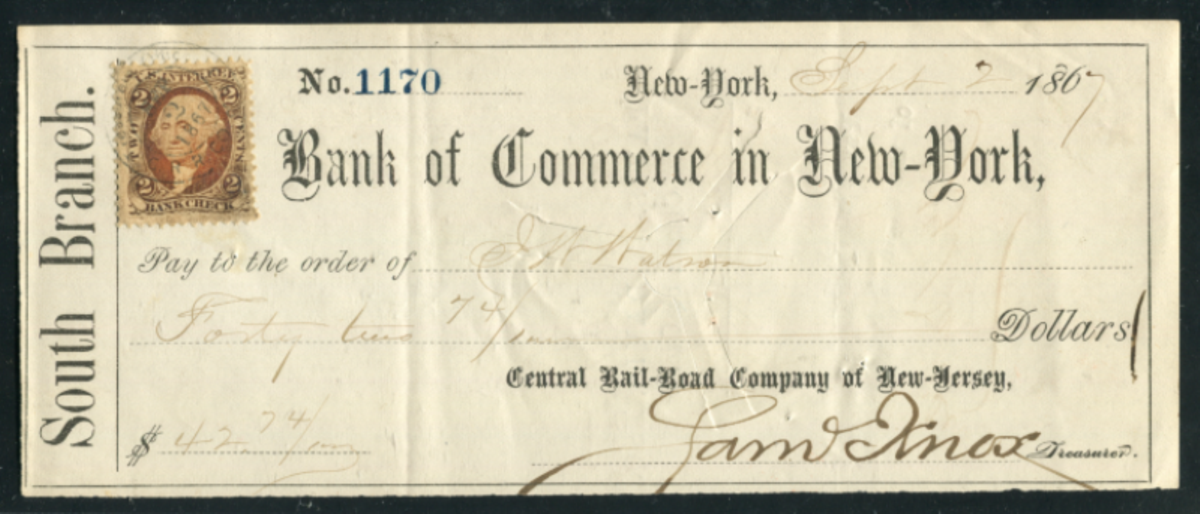 South Branch.
U.S. INTER. REV.
2 2
TWO CENTS
2 2
BANK CHECK
No. 1170 New-York, Sept 2 1867
Bank of Commerce in New-York,
Pay to the order of J W Watson
Forty two 74/100 Dollars
Central Rail-Road Company of New-Jersey,
$ 42 74/100
Saml Knox Treasurer.